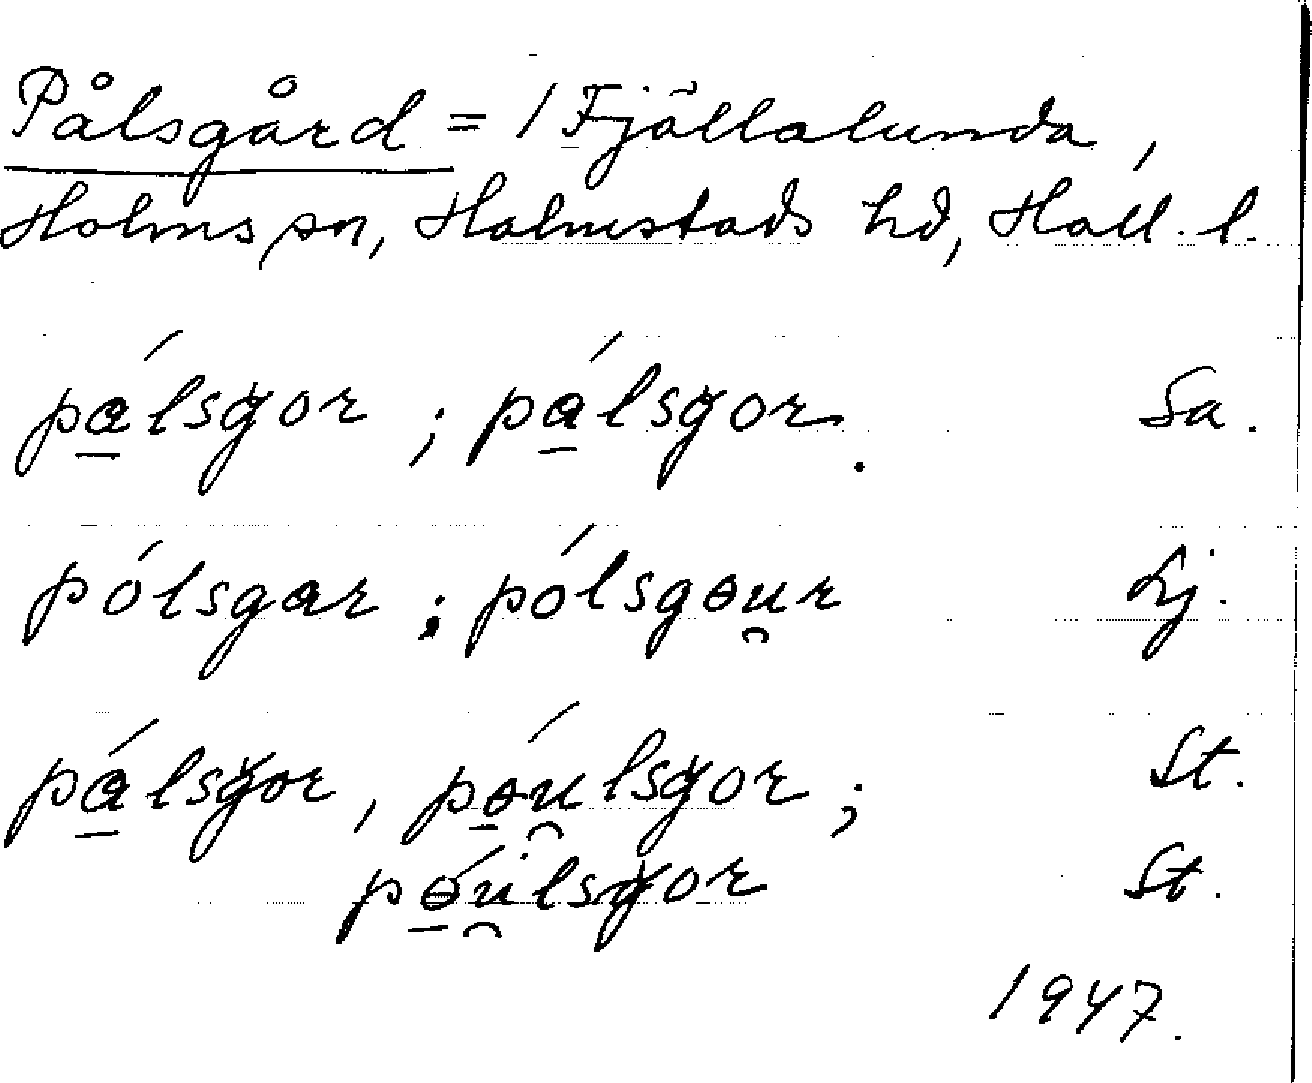 Pålsgård = 1 Fjällalunda,
Holms sn, Halmstads hd, Hall. l.
pá̱lsgor ; pá̱lsgor. Sa.
pólsgar ; pólsgɵu̯r Lj.
pá̱lsgor, pɵ̱́u̯lsgor ; St.
pɵ̱́u̯lsgor St.
1947.